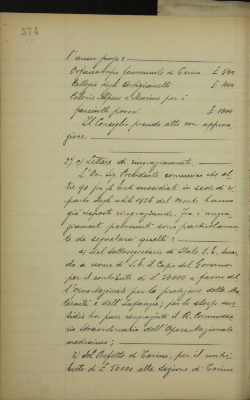 374
l'anno prossº:
Orfanotrofio femminile di Torino £ 500
Collegio degli Artigianelli £ 400
Colonie Alpine e Marine per i
fanciulli poveri £ 1000
Il Consiglio prende atto con approva
zione.
27) a) Lettere di ringraziamento.
L'On. Sig. Presidente comunica che ol
tre 90 fra gli Enti sussidiati in sede di ri
parto degli utili 1926 del Monte hanno
già risposto ringraziando. Fra i ringra
ziamenti pervenuti sono particolarmen
te da segnalare quelli:
a) del Sottosegretario di Stato S. E.
a nome di S. E. il Capo del Governo
per il contributo di £ 50000 a favore del
l'Opera Nazionale per la protezione della Ma
ternità e dell'Infanzia; per lo stesso sus
sidio ha pure ringraziato il R. Commissa
rio Straordinario dell'Opera Nazionale
medesima;
b) del Prefetto di Torino, per il contri
buto di £ 50000 alla Sezione di Torino